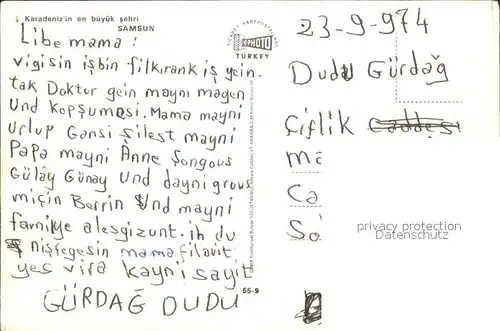 Karadeniz'in en büyük şehri
SAMSUN
Libe mama:
vigisin işbin filkrank iş gein.
tak Doktor gein mayni magen
Und kopşumesi. Mama mayni
urlup Gansi şilest mayni
Papa mayni Anne Şongous
Gülây Günay Und dayni grous
miçin Berrin Und mayni
famiye alesgizunt. ih du
nişfegesin mama filavit
yes vira kayni sayit
GÜRDAĞ DUDU
55-9
PHOTO
TURKEY
23-9-974
Dudu Gürdağ
Çiflik
ma
Ca
So
privacy protection
Datenschutz